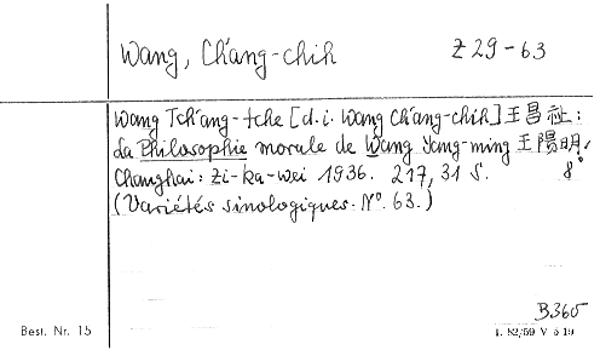 Wang, Ch'ang-chih
Z 29-63
Wang Tch'ang-tche [d.i. Wang Ch'ang-chih] 王昌祉:
La Philosophie morale de Wang Yang-ming 王陽明.
Changhai: Zi-ka-wei 1936. 217, 31 S. 8°
(Variétés sinologiques. N°. 63.)
B365
Best. Nr. 15